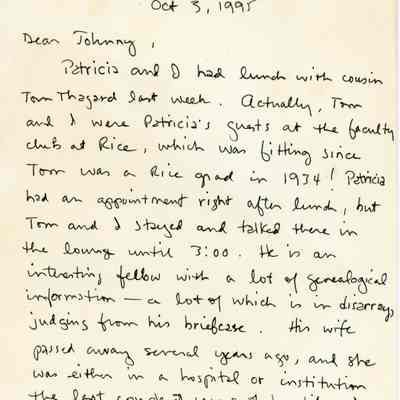 Oct 3, 1995
Dear Johnny,
Patricia and I had lunch with cousin
Tom Thagard last week. Actually, Tom
and I were Patricia's guests at the faculty
club at Rice, which was fitting since
Tom was a Rice grad in 1934! Patricia
had an appointment right after lunch, but
Tom and I stayed and talked there in
the lounge until 3:00. He is an
interesting fellow with a lot of genealogical
information — a lot of which is in disarray,
judging from his briefcase. His wife
passed away several years ago, and she
was either in a hospital or institution
the last couple